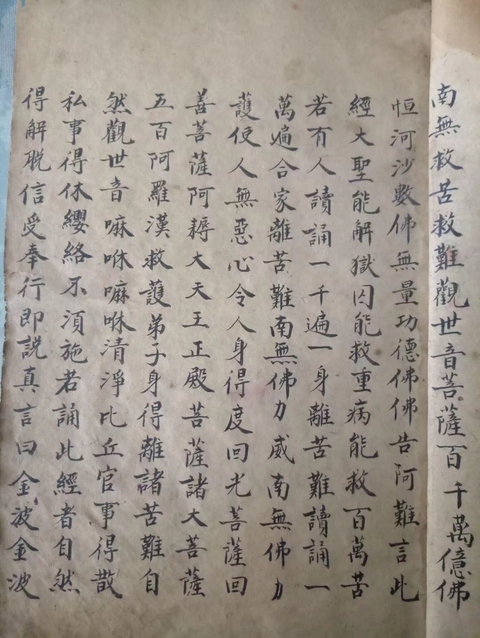 南無救苦救難觀世音菩薩百千萬億佛
恒河沙數佛無量功德佛佛告阿難言此
經大聖能解獄囚能救重病能救百萬苦
若有人讀誦一千遍一身離苦難讀誦一
萬遍合家離苦難南無佛力威南無佛力
護使人無惡心令人身得度回光菩薩回
善菩薩阿耨大天王正殿菩薩諸大菩薩
五百阿羅漢救護弟子身得離諸苦難自
然觀世音嘛咻嘛咻清淨比丘官事得散
私事得休纓絡不須施若誦此經者自然
得解脫信受奉行即說真言曰金波金波